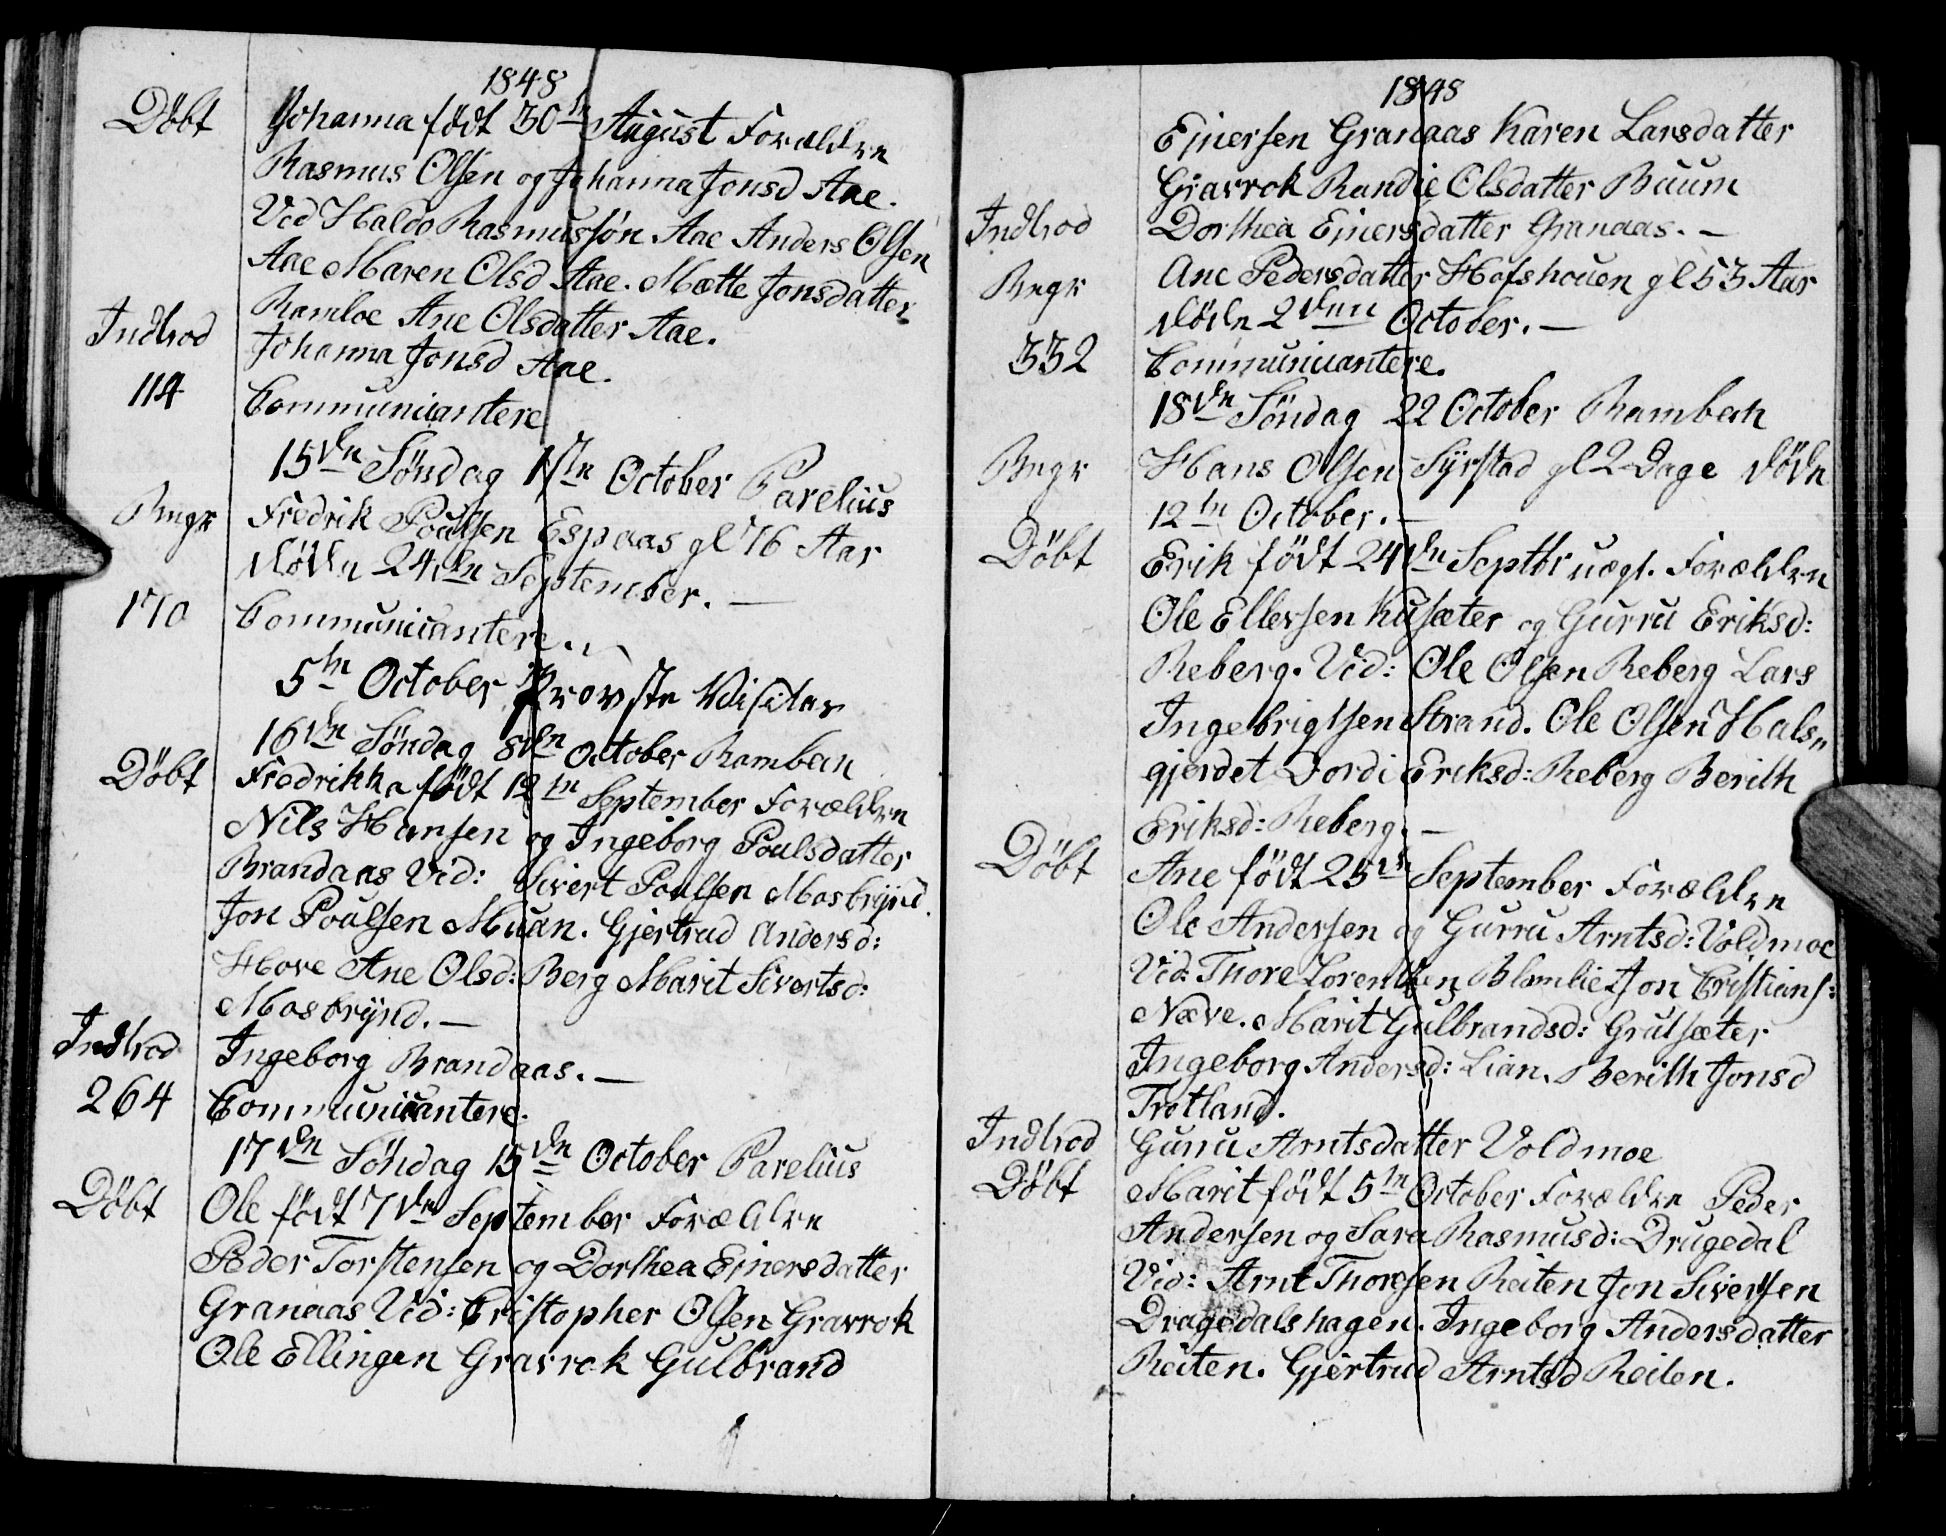 1848
Döbt Johanna födt 30te August Forældre
Rasmus Olsen og Johanna Jonsd Aae.
Vid Haldo Rasmussön Aae Anders Olsen
Aae Maren Olsd Aae. Mætte Jonsdatter
Ramloe Ane Olsdatter Aae.
Indlod Johanna Jonsd Aae.
114 Communicantere
15de Söndag 1ste October Parelius
Begr Fredrik Poulsen Espaas gl 76 Aar
döde 24de September. —
170 Communicantere.
5te October Provste Visitas
16de Söndag 8de October Rambech
Döbt Fredrikka födt 12te September Forældre
Nils Hansen og Ingeborg Poulsdatter
Brandaas Vid: Sivert Poulsen Mosbrynd.
Jon Poulsen Muan. Gjertrud Andersd:
Hove Ane Olsd: Berg Marit Sivertsd:
Mosbrynd. —
Indlod Ingeborg Brandaas. —
264 Communicantere.
17de Söndag 15de October Parelius
Döbt Ole födt 7de September Forældre
Peder Torstensen og Dorthea Einersdatter
Granaas Vid: Cristopher Olsen Gravrok
Ole Ellingen Gravrok Gulbrand
1848
Einersen Granaas Karen Larsdatter
Gravrok Randie Olsdatter Buum
Indlod Dorthea Einersdatter Granaas. —
Begr Ane Pedersdatter Hofshouen gl 53 Aar
döde 2den October. —
332 Communicantere.
18de Söndag 22 October Rambech
Begr Hans Olsen Syrstad gl 2 Dage döde
12te October. —
Döbt Erik födt 24de Septbr uægt. Forældre
Ole Ellevsen Kusæter og Gurru Eriksd:
Reberg. Vid: Ole Olsen Reberg Lars
Ingebrigtsen Strand. Ole Olsen Hals„
gjerdet Dordi Eriksd: Reberg Berith
Eriksd: Reberg. —
Döbt Ane födt 25de September Forældre
Ole Andersen og Gurru Arntsd: Voldmoe
Vid: Thore Lorentsen Blomlie Jon Cristians:
Næve. Marit Gulbrandsd: Grutsæter
Ingeborg Andersd: Lian. Berith Jonsd
Trotland.
Indlod Gurru Arntsdatter Voldmoe
Döbt Marit födt 5te October Forældre Peder
Andersen og Sara Rasmusd: Drugedal
Vid: Arnt Thoresen Reiten Jon Siversen
Dragedalshagen. Ingeborg Andersdatter
Reiten. Gjertrud Arntsd Reiten.